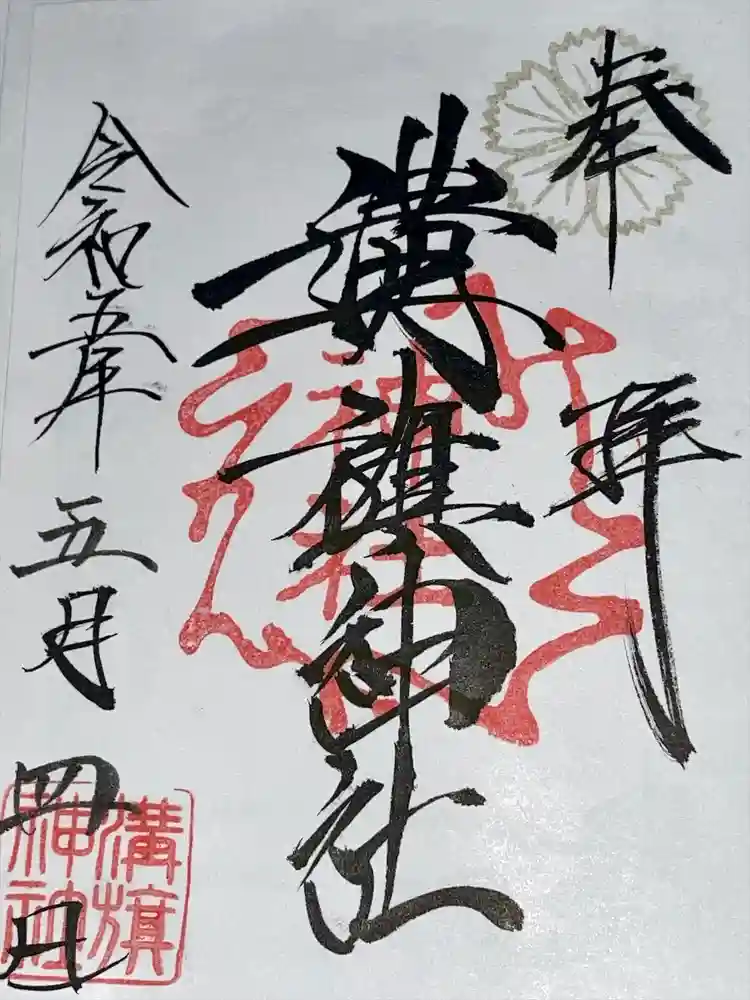 奉拝
溝旗神社
令和五年五月四日
神社
溝旗神社